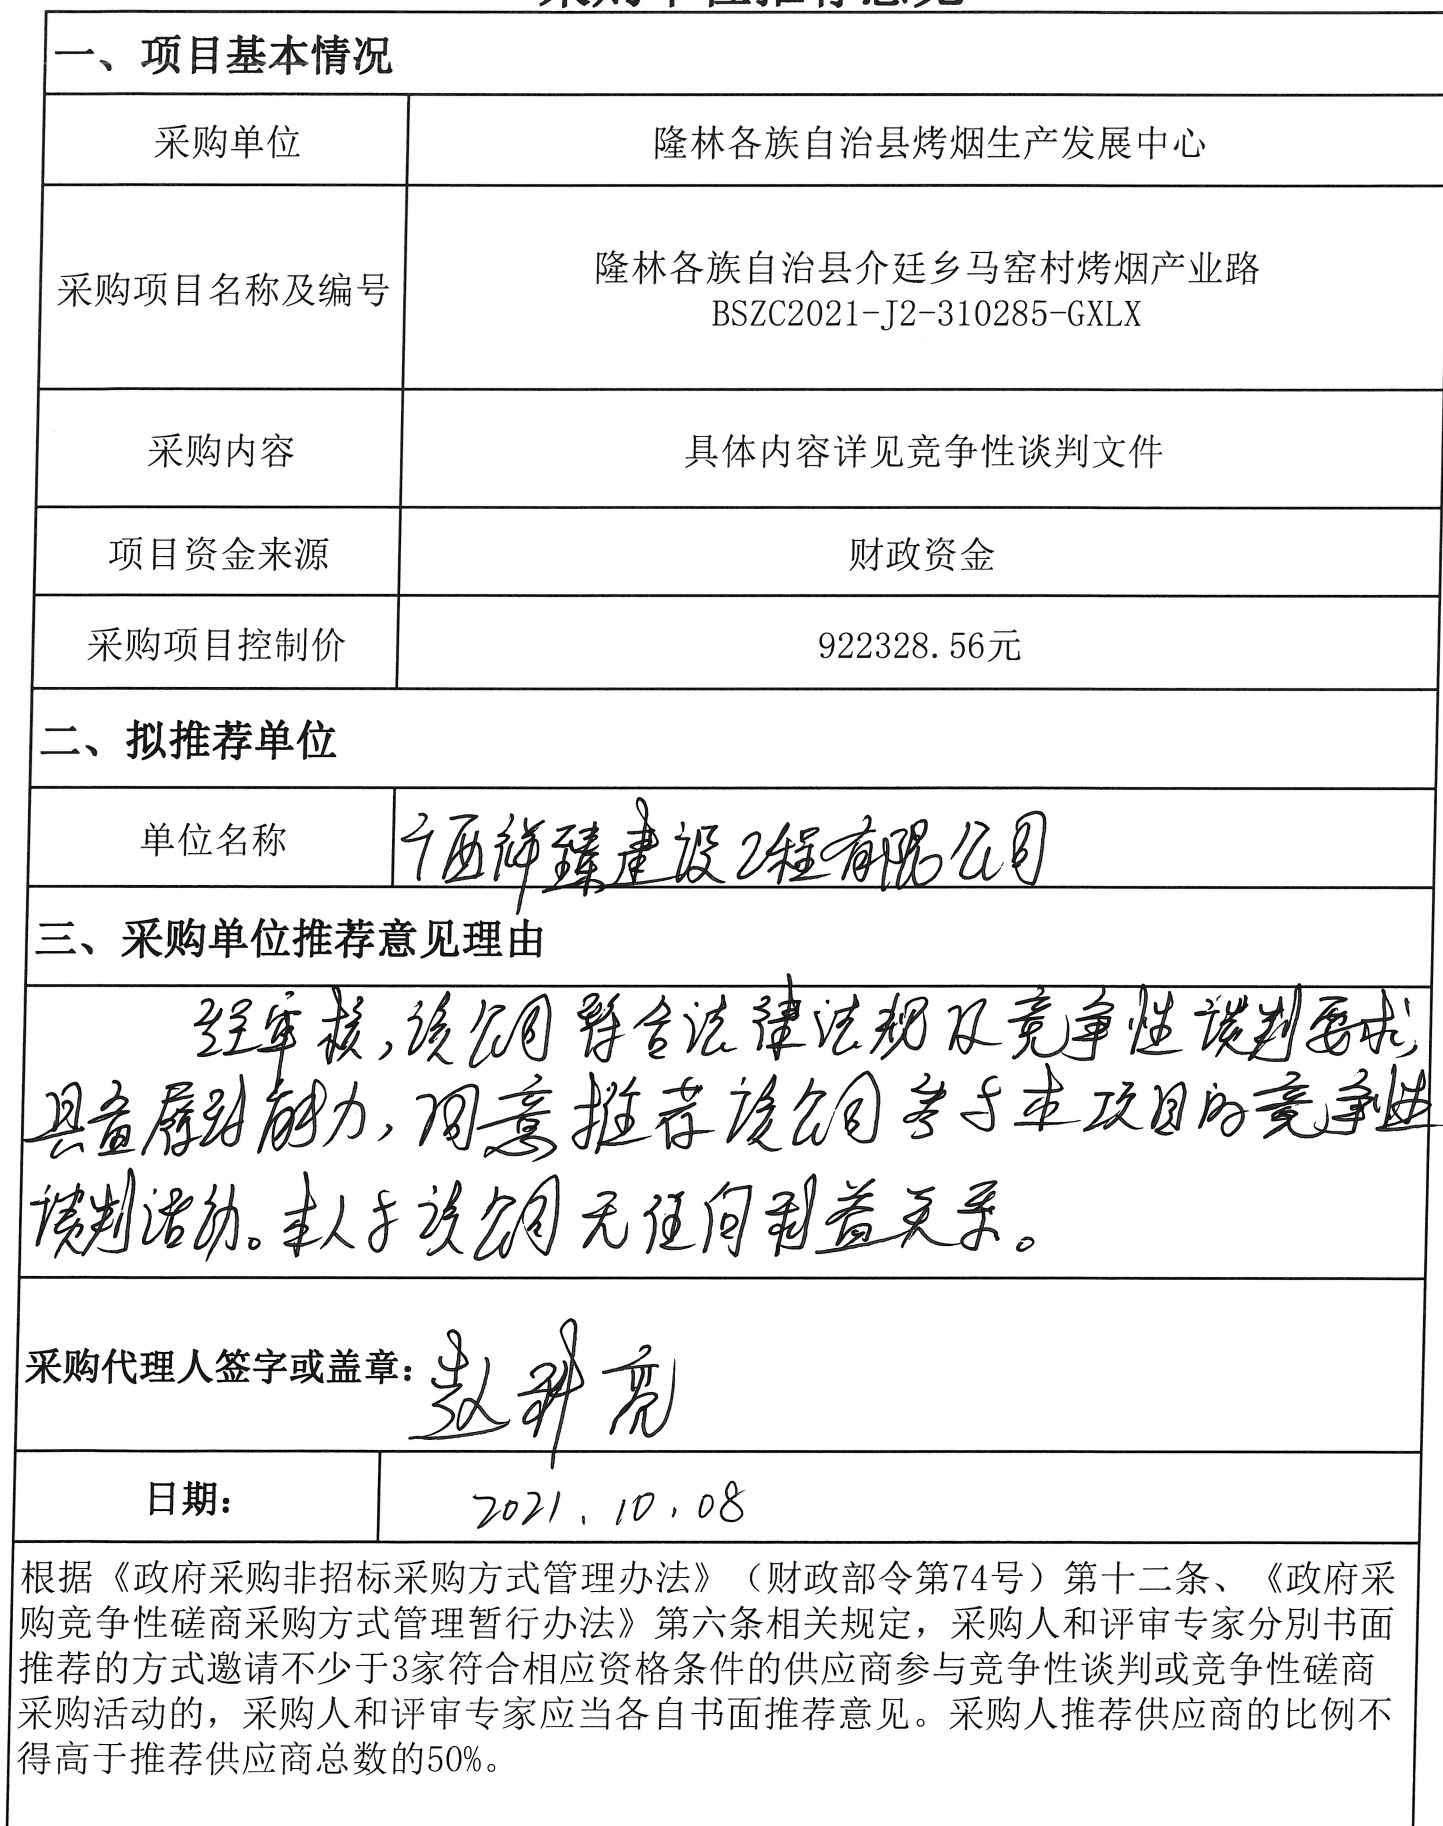 采购单位推荐意见
一、项目基本情况
采购单位
隆林各族自治县烤烟生产发展中心
采购项目名称及编号
隆林各族自治县介廷乡马窑村烤烟产业路
BSZC2021-J2-310285-GXLX
采购内容
具体内容详见竞争性谈判文件
项目资金来源
财政资金
采购项目控制价
922328.56元
二、拟推荐单位
单位名称
广西祥臻建设工程有限公司
三、采购单位推荐意见理由
经审核,该公司符合法律法规及竞争性谈判要求,
具备履约能力,同意推荐该公司参与本项目的竞争性
谈判活动。本人与该公司无任何利益关系。
采购代理人签字或盖章:
赵科亮
日期:
2021.10.08
根据《政府采购非招标采购方式管理办法》（财政部令第74号）第十二条、《政府采
购竞争性磋商采购方式管理暂行办法》第六条相关规定，采购人和评审专家分别书面
推荐的方式邀请不少于3家符合相应资格条件的供应商参与竞争性谈判或竞争性磋商
采购活动的，采购人和评审专家应当各自书面推荐意见。采购人推荐供应商的比例不
得高于推荐供应商总数的50%。